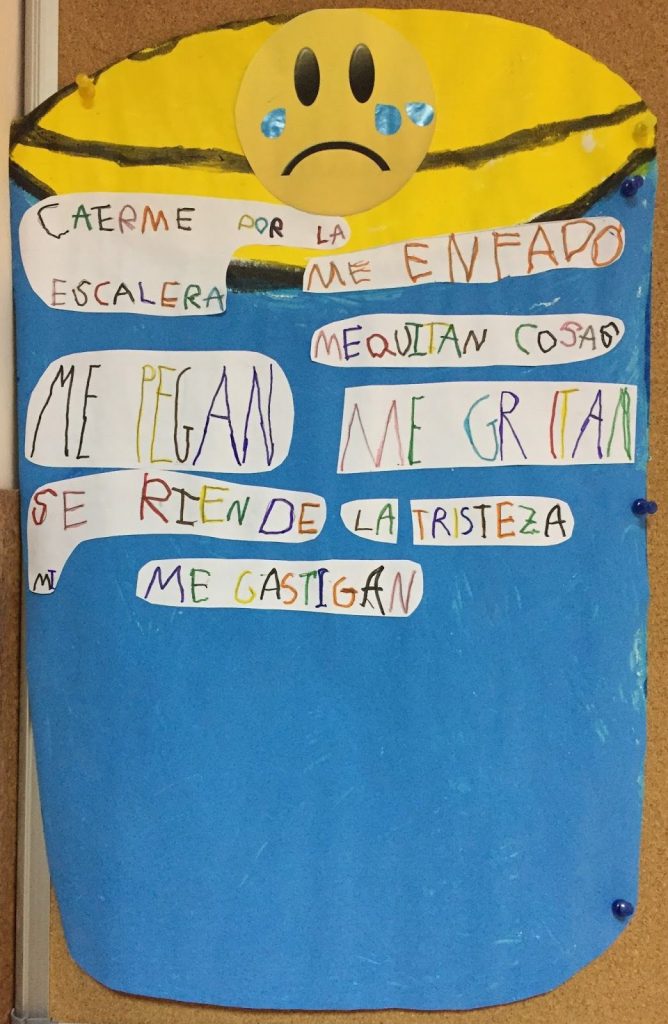 CAERME POR LA
ESCALERA
ME ENFADO
MEQUITAN COSAS
ME PEGAN
ME GRITAN
SE RIEN DE
MI
LA TRISTEZA
ME GASTIGAN